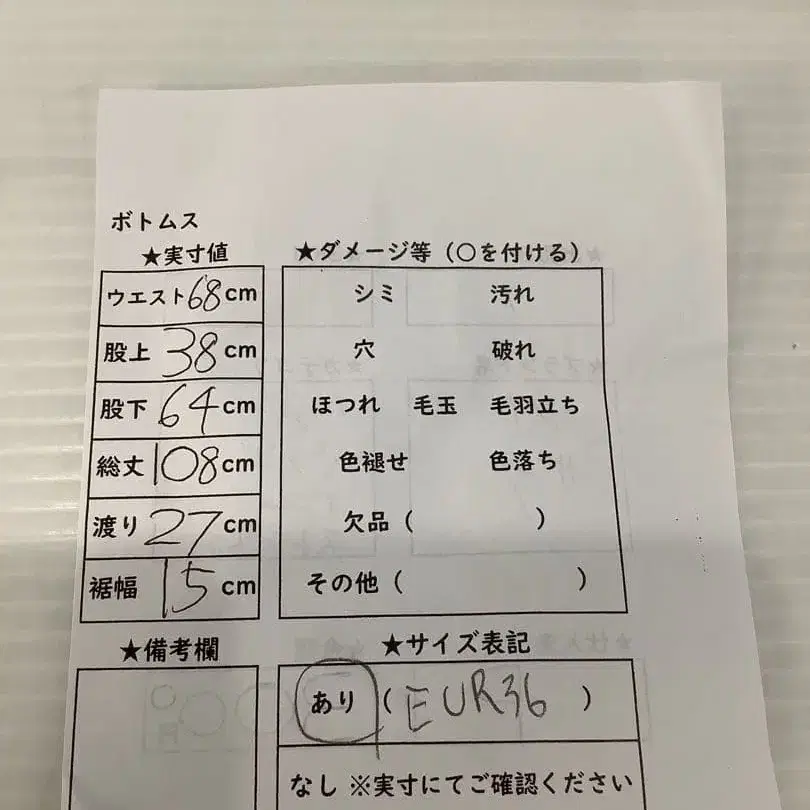 ボトムス
★実寸値
ウエスト68cm
股上 38cm
股下 64cm
総丈 108cm
渡り 27cm
裾幅 15cm
★ダメージ等（〇を付ける）
シミ 汚れ
穴 破れ
ほつれ 毛玉 毛羽立ち
色褪せ 色落ち
欠品（ ）
その他（ ）
★備考欄
★サイズ表記
あり（EUR36）
なし ※実寸にてご確認ください